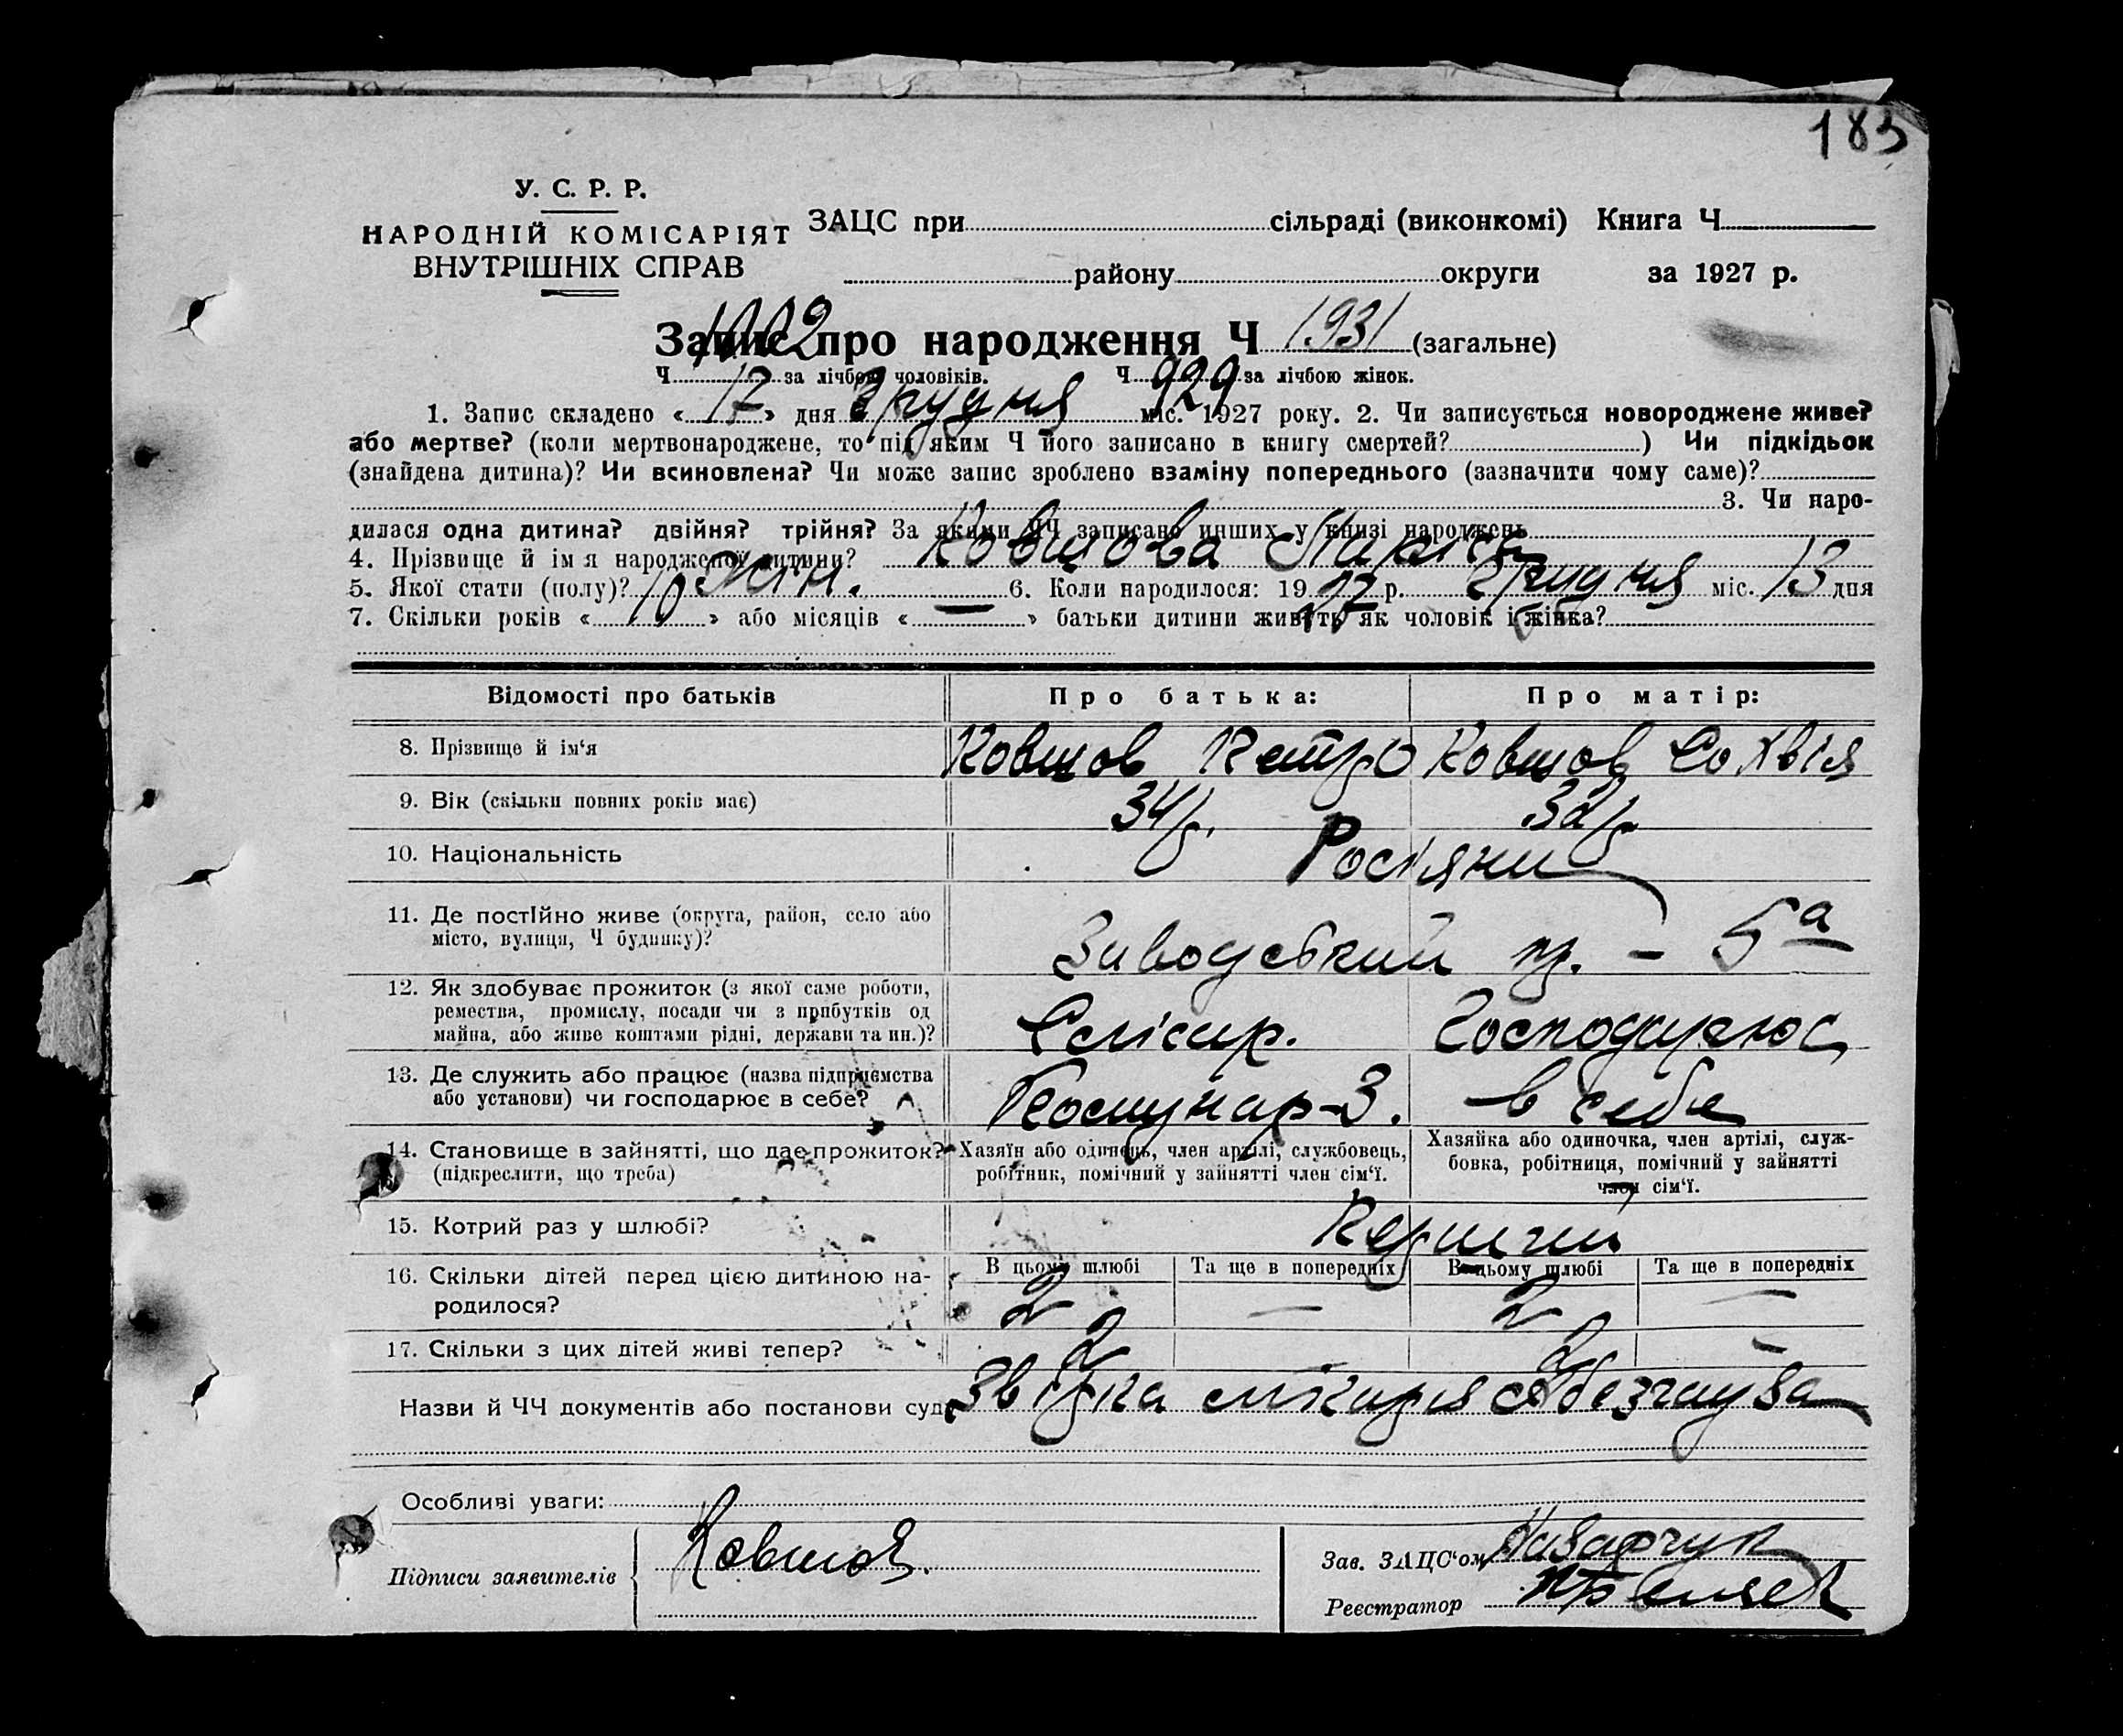 183
У. С. Р. Р.
НАРОДНІЙ КОМІСАРІЯТ
ВНУТРІШНІХ СПРАВ
ЗАЦС при сільраді (виконкомі) Книга Ч
району округи за 1927 р.
Запис про народження Ч 1931 (загальне)
Ч 1002 за лічбою чоловіків. Ч 929 за лічбою жінок.
1. Запис складено « 17 » дня Грудня міс. 1927 року. 2. Чи записується новороджене живе?
або мертве? (коли мертвонароджене, то під яким Ч його записано в книгу смертей? ) Чи підкідьок
(знайдена дитина)? Чи всиновлена? Чи може запис зроблено взаміну попереднього (зазначити чому саме)?
3. Чи наро-
дилася одна дитина? двійня? трійня? За якими ЧЧ записано инших у книзі народжень
4. Прізвище й ім я народженої дитини? Ковшова Марія
5. Якої стати (полу)? жін. 6. Коли народилося: 19 27 р. Грудня міс. 13 дня
7. Скільки років « 10 » або місяців « — » батьки дитини живуть як чоловік і жінка?
Відомості про батьків Про батька: Про матір:
8. Прізвище й ім‘я Ковшов Петро Ковшов Софвія
9. Вік (скільки повних років має) 34 32
10. Національність Росіяни
11. Де постійно живе (округа, район, село або
місто, вулиця, Ч будинку)? Заводський п. - 5а
12. Як здобуває прожиток (з якої саме роботи,
ремества, промислу, посади чи з прибутків од
майна, або живе коштами рідні, держави та ин.)? Слюсар. Господарює
13. Де служить або працює (назва підприємства
або установи) чи господарює в себе? Комунар-3. в себе
14. Становище в зайнятті, що дає прожиток?
(підкреслити, що треба)
Хазяїн або одинець, член артілі, службовець,
робітник, помічний у зайнятті член сім‘ї.
Хазяйка або одиночка, член артілі, служ-
бовка, робітниця, помічний у зайнятті
член сім‘ї.
15. Котрий раз у шлюбі? Перший
В цьому шлюбі Та ще в попередніх В цьому шлюбі Та ще в попередніх
16. Скільки дітей перед цією дитиною на-
родилося? 2 — 2 —
17. Скільки з цих дітей живі тепер? 2 2 —
Назви й ЧЧ документів або постанови суду Звістка лікаря
Особливі уваги:
Підписи заявителів Ковшов.
Зав. ЗАЦС‘ом Назарчук
Реєстратор